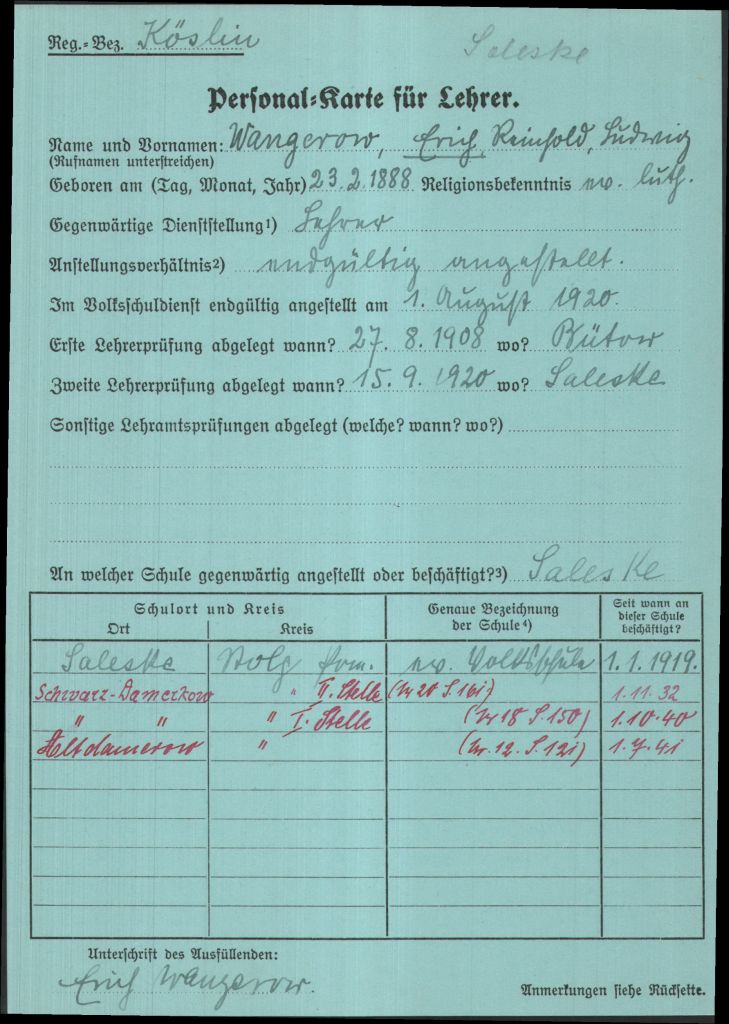 Reg.-Bez. Köslin
Saleske
Personal-Karte für Lehrer.
Name und Vornamen: Wangerow, Erich, Reinhold, Ludwig
(Rufnamen unterstreichen)
Geboren am (Tag, Monat, Jahr) 23.2.1888 Religionsbekenntnis ev. luth.
Gegenwärtige Dienststellung¹) Lehrer
Anstellungsverhältnis²) endgültig angestellt.
Im Volksschuldienst endgültig angestellt am 1. August 1920.
Erste Lehrerprüfung abgelegt wann? 27. 8. 1908 wo? Bütow
Zweite Lehrerprüfung abgelegt wann? 15. 9. 1920 wo? Saleske
Sonstige Lehramtsprüfungen abgelegt (welche? wann? wo?)
An welcher Schule gegenwärtig angestellt oder beschäftigt?³) Saleske
Schulort und Kreis Genaue Bezeichnung der Schule⁴) Seit wann an dieser Schule beschäftigt?
Ort Kreis
Saleske Stolp Pom. ev. Volksschule 1.1.1919.
Schwarz-Damerkow " II. Stelle (Nr 20 S. 161) 1.11.32
" " " I. Stelle (Nr 18 S. 150) 1.10.40
Altdamerow " (Nr. 12. S. 121) 1.7.41
Unterschrift des Ausfüllenden:
Erich Wangerow.
Anmerkungen siehe Rückseite.